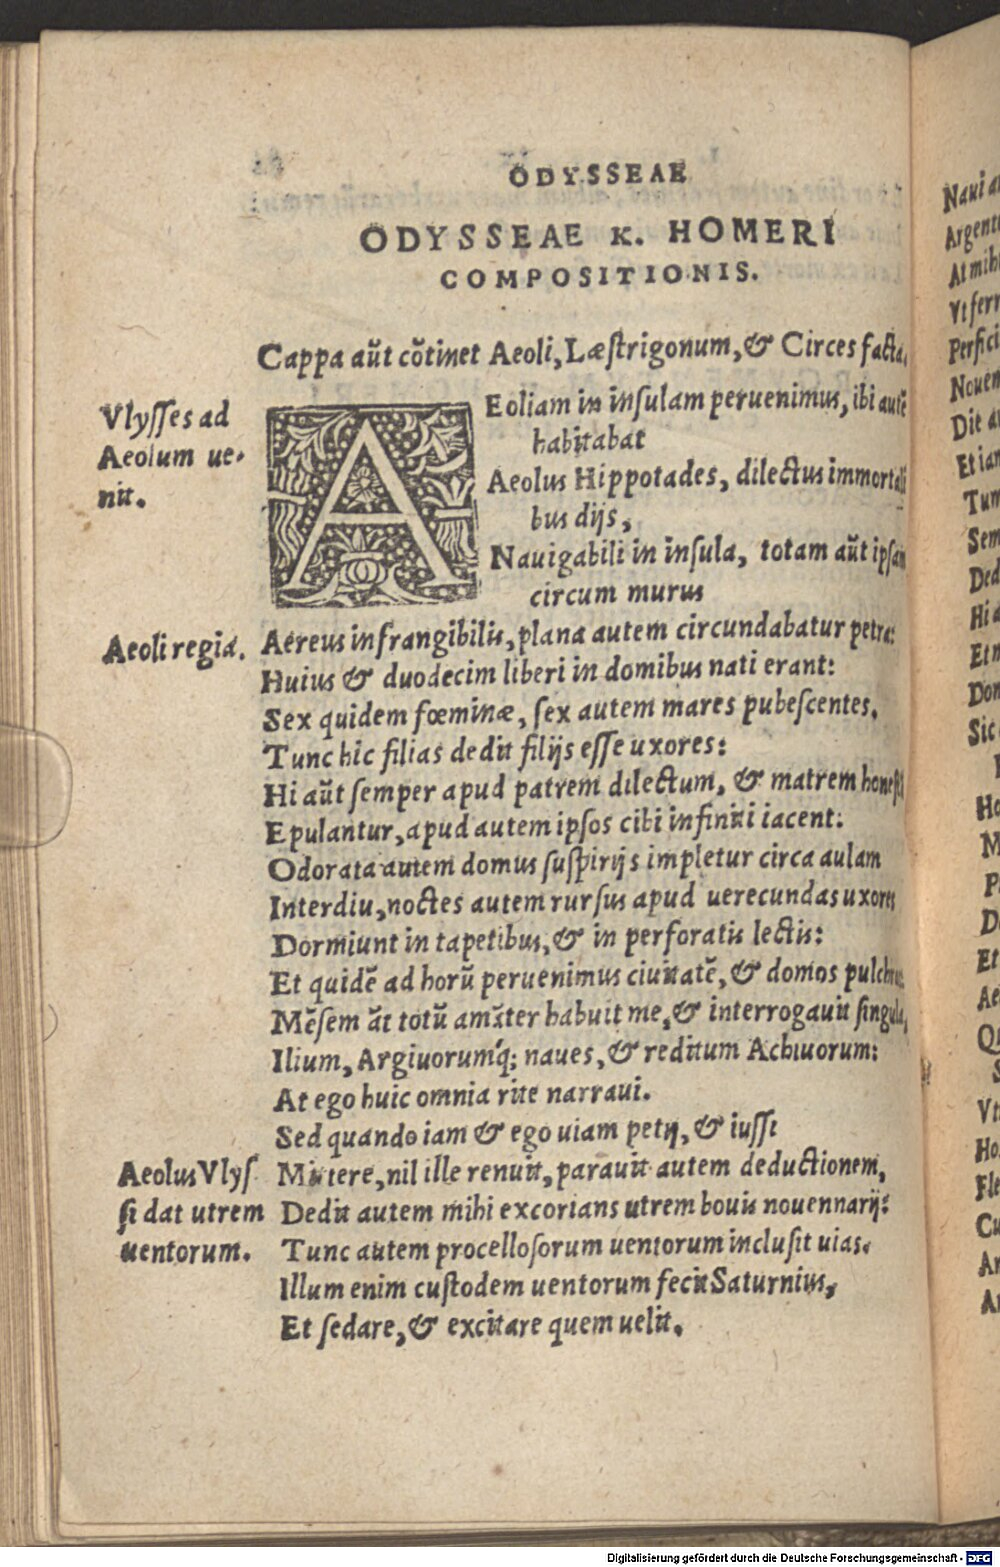 ODYSSEAE
ODYSSEAE K. HOMERI
COMPOSITIONIS.
Cappa aūt cōtinet Aeoli, Læſtrigonum, & Circes facta.
Vlyſſes ad
Aeolum ue-
nit.
AEoliam in inſulam peruenimus, ibi autē
habitabat
Aeolus Hippotades, dilectus immortali
bus dijs,
Nauigabili in inſula, totam aūt ipſam
circum murus
Aeoli regia.
Aereus infrangibilis, plana autem circundabatur petra:
Huius & duodecim liberi in domibus nati erant:
Sex quidem fœminæ, ſex autem mares pubeſcentes.
Tunc hic filias dedit filijs eſſe uxores:
Hi aūt ſemper apud patrem dilectum, & matrem honeſtā
Epulantur, apud autem ipſos cibi infiniti iacent:
Odorata autem domus ſuſpirijs impletur circa aulam
Interdiu, noctes autem rurſus apud uerecundas uxores
Dormiunt in tapetibus, & in perforatis lectis:
Et quidē ad horū peruenimus ciuitatē, & domos pulchras
Mēſem āt totū amāter habuit me, & interrogauit ſingula,
Ilium, Argiuorumq́; naues, & reditum Achiuorum:
At ego huic omnia rite narraui.
Sed quando iam & ego uiam petij, & iuſſi
Aeolus Vlyſ
ſi dat utrem
uentorum.
Mittere, nil ille renuit, parauit autem deductionem,
Dedit autem mihi excorians utrem bouis nouennarij:
Tunc autem procelloſorum uentorum incluſit uias.
Illum enim cuſtodem uentorum fecit Saturnius,
Et ſedare, & excitare quem uelit.
Digitalisierung gefördert durch die Deutsche Forschungsgemeinschaft - DFG